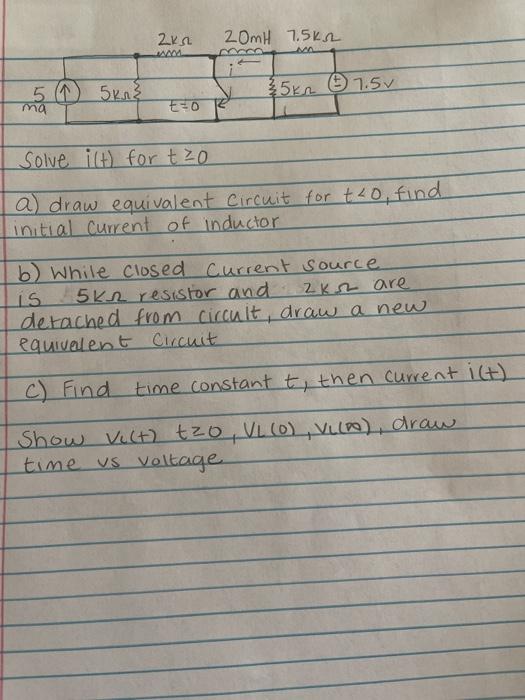 2kΩ 20mH 7.5kΩ
i
5 ma 5kΩ t=0 5kΩ 7.5v
Solve i(t) for t≥0
a) draw equivalent circuit for t<0, find
initial current of inductor
b) While closed current source
is 5kΩ resistor and 2kΩ are
detached from circuit, draw a new
equivelent circuit
c) Find time constant t, then current i(t)
Show VL(t) t≥0, VL(0), VL(∞), draw
time vs voltage